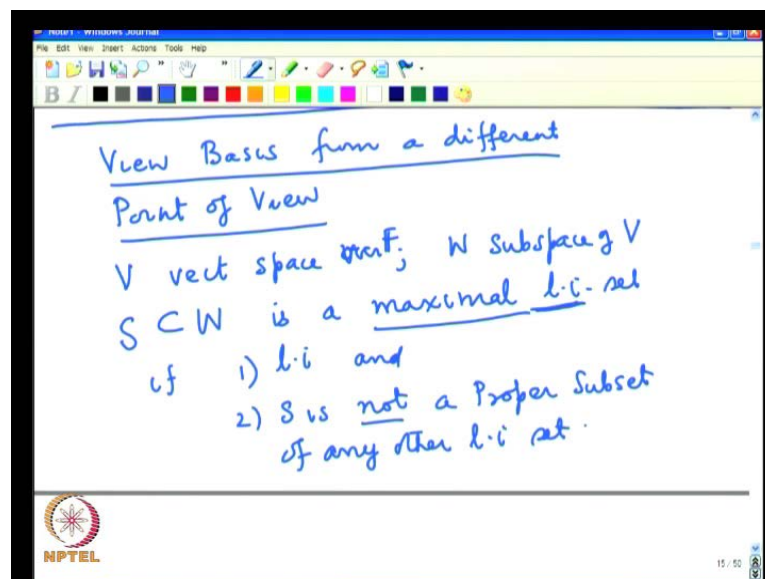 Note1 - Windows Journal
File Edit View Insert Actions Tools Help
B I
View Basis from a different
Point of View
V vect space over F; W subspace of V
S ⊂ W is a maximal l.i. set
if 1) l.i and
2) S is not a Proper Subset
of any other l.i set.
NPTEL
15 / 50